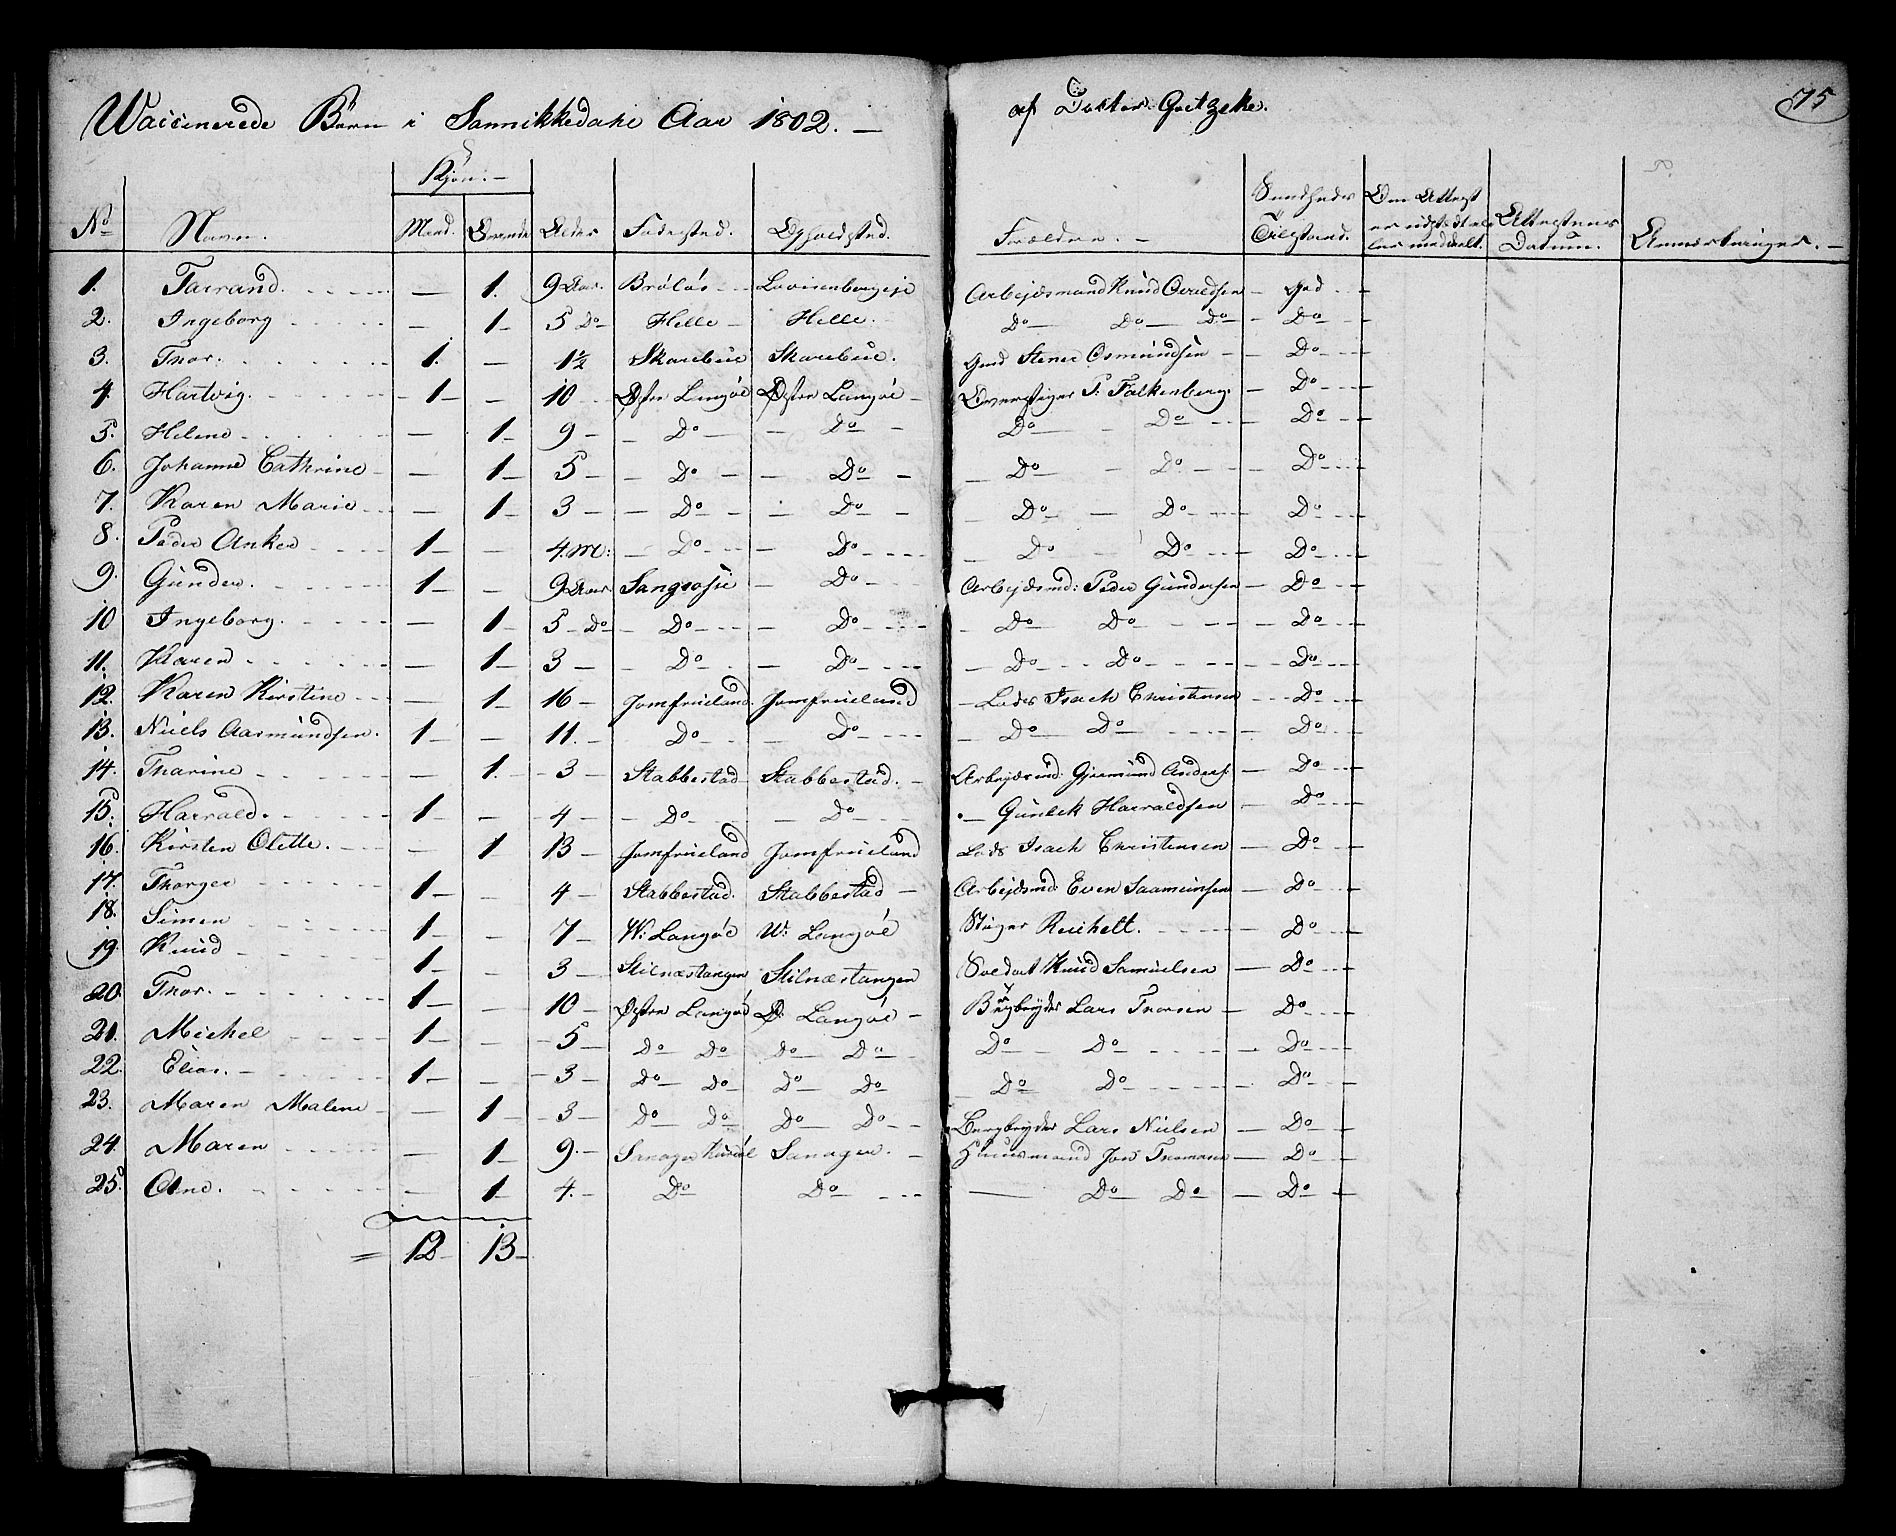 Waccinerede Børn i Sannikkedahl Aar 1802. — af Doctor Goetzeke. 75
Kjøn. —
No Navn. Mand. Qvinde Alder Fødested. Opholdsted. Forældre. — Sundheds Tilstand. Om Attest er udstedt eller meddeelt. Attestens Datum. Anmerkninger. —
1. Tarrand. — 1. 9 Aar. Brölös Lovisenbergeje Arbejdsmand Knud Evaldsen — God
2. Ingeborg — 1 — 5 Do Helle — Helle. Do — Do — Do — Do
3. Thor. 1. — 1½ Skarebüe Skarebüe. Gmd Stener Osmundsen — Do
4. Hartvig. 1 — 10 Østre Langøe Østre Langøe — Overstiger P. Falkenberg. — Do
5. Helene — 1 — 9 — Do — Do — Do — Do — Do
6. Johanne Cathrine — 1 — 5 — Do — Do — Do — Do — Do
7. Karen Marie — 1 — 3 — Do — Do — Do — Do — Do
8. Peder Anker 1 — 4. M: — Do — Do — Do — Do — Do
9. Gunder. 1 — 9 Aar Sangsosie — Do — Arbejdsmd: Peder Gundersen — Do
10 Ingeborg. — 1 — 5 — Do — Do — Do — Do Do — Do
11. Karen — 1 — 3 — Do — Do — Do Do — Do
12. Karen Kirstine — 1 — 16 — Jomfrueland Jomfrueland — Lods Isach Christensen Do
13. Niels Aasmundsen. 1 — 11. — Do — Do — Do Do — Do
14. Tharine — 1. — 3 — Stabbestad — Stabbestad. — Arbejdsmd: Gjermund Anders: — Do
15. Harrald. 1 — 4 — Do — Do — Gunlek Harraldsen — Do
16. Kirsten Olette. — 1 — 13 — Jomfrueland Jomfrueland Lods Isach Christensen — Do
17. Thorger 1 — 4 — Stabbestad. Stabbestad — Arbejdsmd Even Saamunsen — Do
18. Simen 1 — 7 — W: Langöe W: Langöe Stiger Reichelt. — Do
19. Knud 1 — 3 — Stilnæstangen Stilnæstangen Soldat Knud Samuelsen — Do
20. Thor. — 1 — 10 — Østre Langøe Ø: Langöe — Bergbryder Lars Thorsen — Do
21. Michel 1 — 5 — Do Do Do Do — Do — Do — Do
22. Elias. — 1 — 3 — Do Do Do Do — Do Do — Do
23. Maren Malene — 1 — 3 — Do Do Do Do — Bergbryder Lars Nielsen — Do
24. Maren — 1 — 9. — Sanagen. — Huusmand Jon Thomasen — Do
25. Ane. — 1 — 4. — Do Do — Do Do — Do
= 12 13